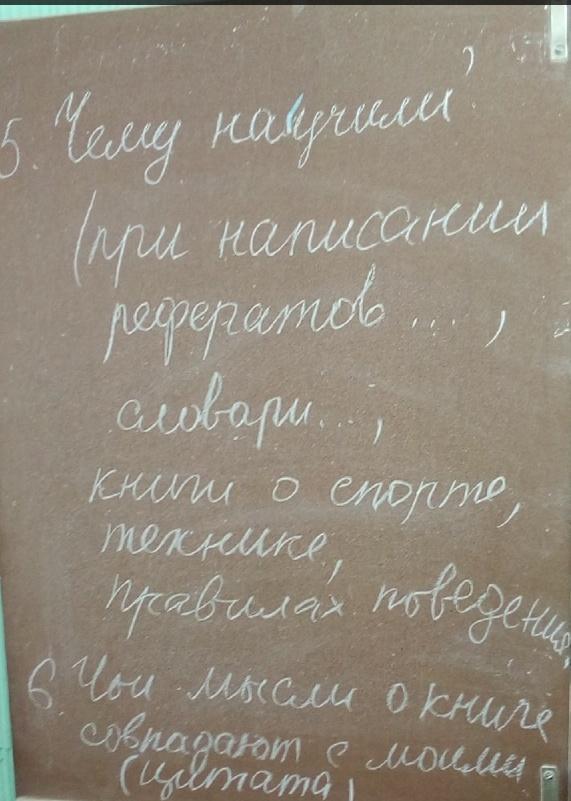 5. Чему научили
(при написании
рефератов ... ,
словари...,
книги о спорте,
технике,
правилах поведения,
6. Чьи мысли о книге
совпадают с моими
(цитата)